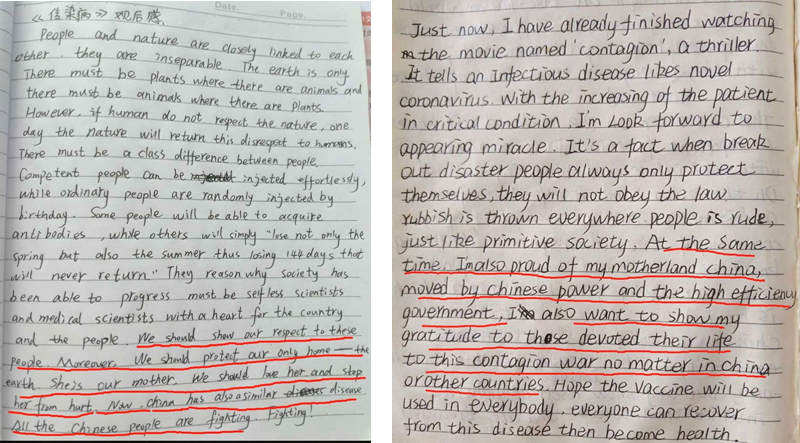 《传染病》观后感.
Date.
Page.
People and nature are closely linked to each
other. they are inseparable. The earth is only
There must be plants where there are animals and
there must be animals where there are plants.
However, if human do not respect the nature, one
day the nature will return this disrespect to humans.
There must be a class difference between people.
Competent people can be injected effortlessly,
while ordinary people are randomly injected by
birthday. Some people will be able to acquire
antibodies, while others will simply "lose not only the
spring but also the summer thus losing 144 days that
will never return." They reason why society has
been able to progress must be selfless scientists
and medical scientists with a heart for the country
and the people. We should show our respect to these
people. Moreover. We should protect our only home — the
earth. She is our mother. We should love her and stop
her from hurt. Now. China has also a similar disease
All the Chinese people are fighting. Fighting!
Just now, I have already finished watching
the movie named 'contagion', a thriller.
It tells an Infectious disease likes novel
coronavirus. With the increasing of the patient
in critical condition, I'm Look forward to
appearing miracle. It's a fact when break
out disaster people always only protect
themselves, they will not obey the law
rubbish is thrown everywhere people is rude,
just like primitive society. At the same
time. Im also proud of my motherland china,
moved by chinese power and the high efficiency
government, I also want to show my
gratitude to those devoted their life
to this contagion war no matter in china
or other countries. Hope the vaccine will be
used in everybody. everyone can recover
from this disease then become health.